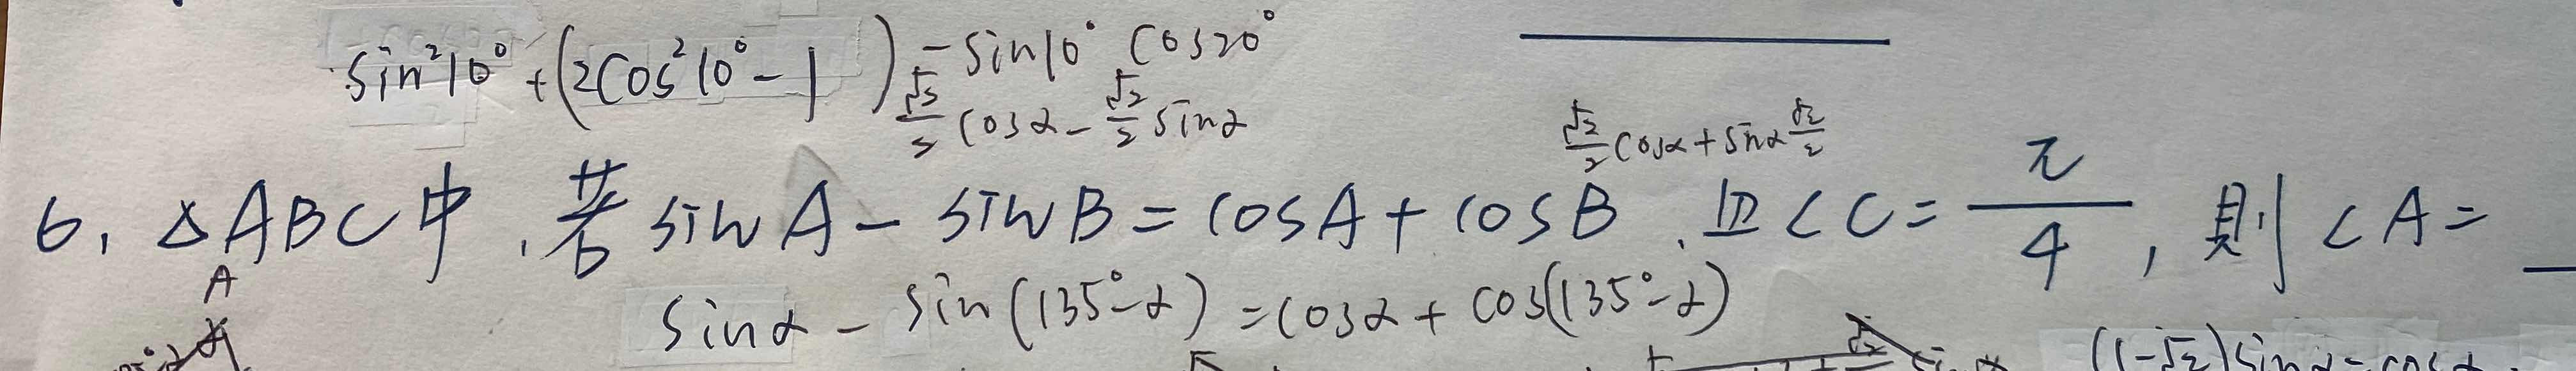 sin²10°+(2cos²10°-1)-sin10° cos20°
√2/2 cosα-√2/2 sinα
√2/2 cosα+sinα √2/2
6. △ABC中,若 sinA-sinB=cosA+cosB,且∠C=π/4,則∠A=
A
α
sinα-sin(135°-α)=cosα+cos(135°-α)
(1-√2)sinα=cosα